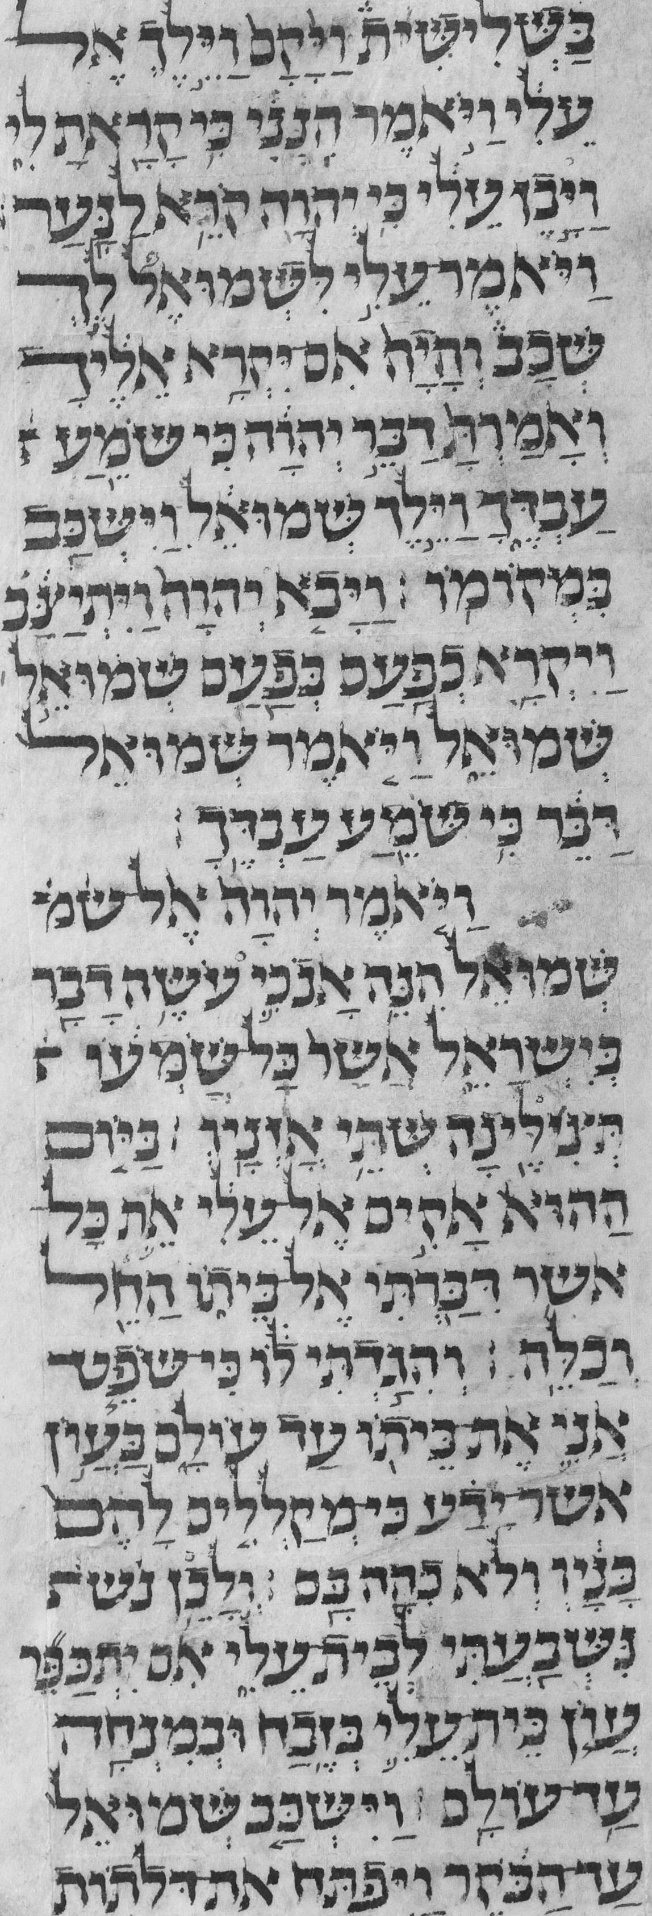 בַּשְּׁלִישִׁית וַיָּקָם וַיֵּלֶךְ אֶל
עֵלִי וַיֹּאמֶר הִנְנִי כִּי קָרָאתָ לִי
וַיָּבֶן עֵלִי כִּי יְהוָה קֹרֵא לַנָּעַר
וַיֹּאמֶר עֵלִי לִשְׁמוּאֵל לֵךְ
שְׁכַב וְהָיָה אִם יִקְרָא אֵלֶיךָ
וְאָמַרְתָּ דַּבֵּר יְהוָה כִּי שֹׁמֵעַ
עַבְדֶּךָ וַיֵּלֶךְ שְׁמוּאֵל וַיִּשְׁכַּב
בִּמְקוֹמוֹ : וַיָּבֹא יְהוָה וַיִּתְיַצַּב
וַיִּקְרָא כְפַעַם בְּפַעַם שְׁמוּאֵל
שְׁמוּאֵל וַיֹּאמֶר שְׁמוּאֵל
דַּבֵּר כִּי שֹׁמֵעַ עַבְדֶּךָ :
וַיֹּאמֶר יְהוָה אֶל שמ
שְׁמוּאֵל הִנֵּה אָנֹכִי עֹשֶׂה דָבָר
בְּיִשְׂרָאֵל אֲשֶׁר כָּל שֹׁמְעוֹ
תְּצִלֶּינָה שְׁתֵּי אָזְנָיו : בַּיּוֹם
הַהוּא אָקִים אֶל עֵלִי אֵת כָּל
אשֶׁר דִּבַּרְתִּי אֶל בֵּיתוֹ הָחֵל
וְכַלֵּה : וְהִגַּדְתִּי לוֹ כִּי שֹׁפֵט
אֲנִי אֶת בֵּיתוֹ עַד עוֹלָם בַּעֲוֹן
אשר יָדַע כִּי מְקַלְלִים לָהֶם
בָּנָיו וְלֹא כִהָה בָּם : וְלָכֵן נש
נִשְׁבַּעְתִּי לְבֵית עֵלִי אִם יִתְכַּפֵּר
עֲוֹן בֵּית עֵלִי בְּזֶבַח וּבְמִנְחָה
עַד עוֹלָם : וַיִּשְׁכַּב שְׁמוּאֵל
עַד הַבֹּקֶר וַיִּפְתַּח אֶת דַּלְתוֹת